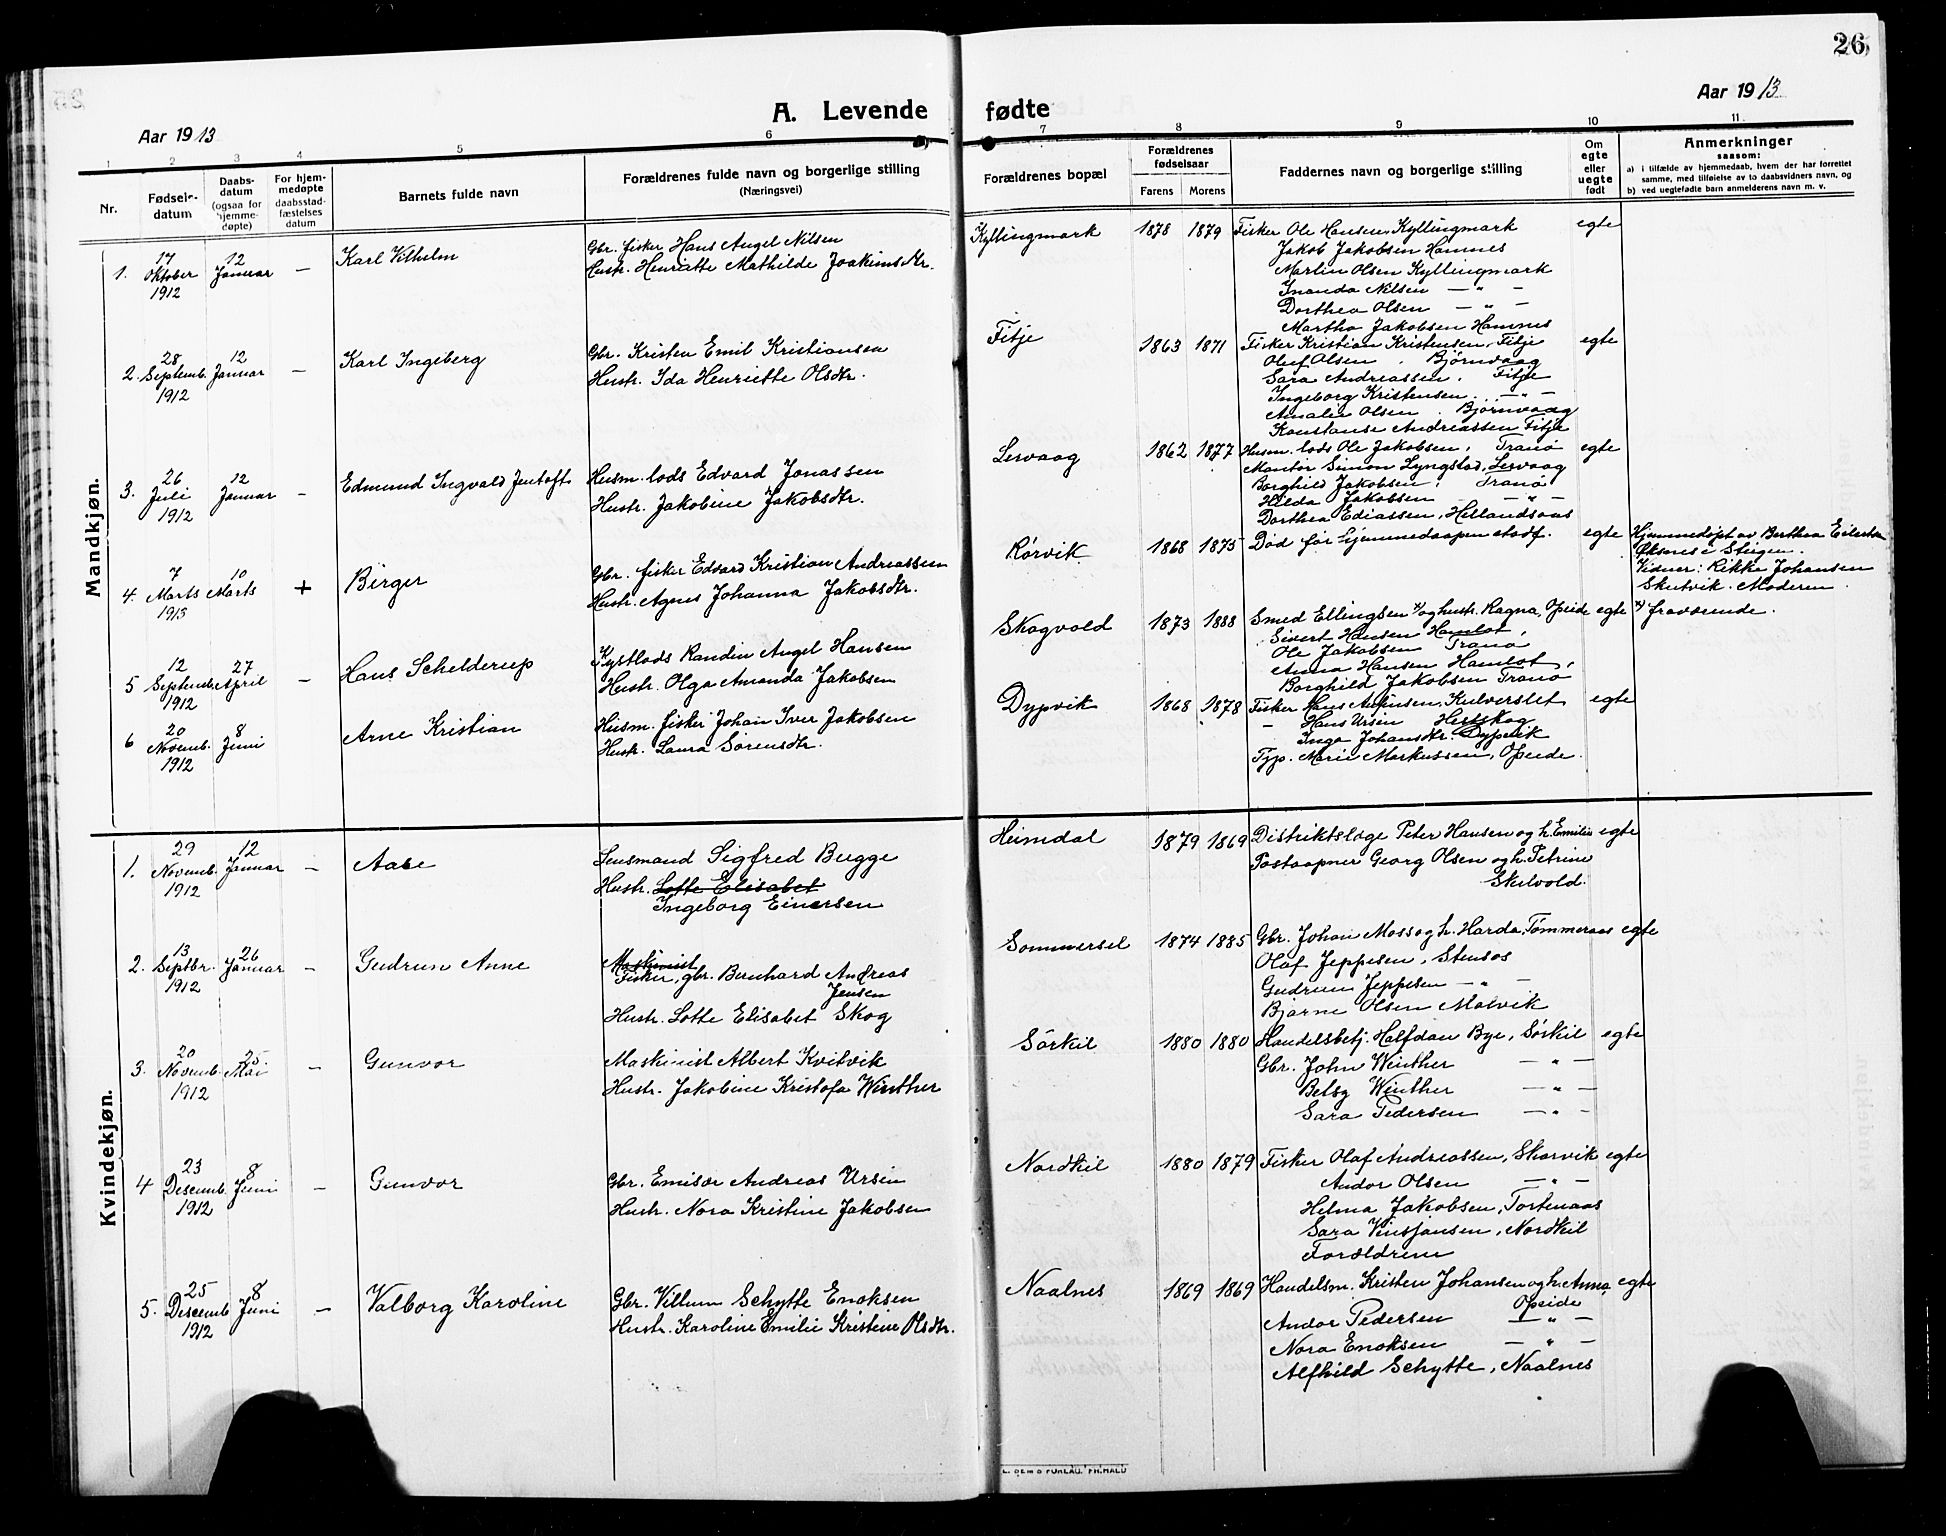 26
A. Levende fødte
Aar 1913
Aar 1913
1 2 3 4 5 6 7 8 9 10 11
Nr.
Fødsels-
datum
Daabs-
datum
(ogsaa for
hjemme-
døpte)
For hjem-
medøpte
daabsstad-
fæstelses
datum
Barnets fulde navn
Forældrenes fulde navn og borgerlige stilling
(Næringsvei)
Forældrenes bopæl
Forældrenes
fødselsaar
Farens Morens
Faddernes navn og borgerlige stilling
Om
egte
eller
uegte
født
Anmerkninger
saasom:
a) i tilfælde av hjemmedaab, hvem der har forrettet
samme, med tilføielse av to daabsvidners navn, og
b) ved uegtefødte barn anmelderens navn m. v.
Mandkjøn.
1. 17 Oktober 1912
12 Januar
—
Karl Vilhelm
Gbr. fisker Hans Angel Nilsen
Hustr. Henriette Mathilde Joakimsdtr.
Kyllingmark
1878 1879
Fisker Ole Hansen, Kyllingmark
Jakob Jakobsen Hamnes
Martin Olsen Kyllingmark
Inanda Nilsen — " —
Dorthea Olsen — " —
Martha Jakobsen Hamnes
egte
2. 28 Septemb. 1912
12 Januar
—
Karl Ingeberg
Gbr. Kristen Emil Kristiansen
Hustr. Ida Henriette Olsdtr.
Fitje
1863 1871
Fisker Kristian Kristensen, Fitje
Oluf Olsen. Bjørnvaag
Sara Andreassen. Fitje
Ingeborg Kristensen. — " —
Amalie Olsen. Bjørnvaag
Konstanse Andreassen Fitje
egte
3. 26 Juli 1912
12 Januar
—
Edmund Ingvald Jentoft
Husm. lods Edvard Jonassen
Hustr. Jakobine Jakobsdtr.
Lervaag
1862 1877
Husm. lods Ole Jakobsen, Tranø
Kantor Simon Lyngstad, Lervaag
Borghild Jakobsen, Tranø
Hilda Jakobsen — " —
Dorthea Ediassen, Hellandsaas
egte
4. 7 Marts 1913
10 Marts
+
Birger
Gbr. fisker Edvard Kristian Andreassen
Hustr. Agnes Johanna Jakobsdtr.
Rørvik
1868 1875
Død før hjemmedaapen stadf.
egte
Hjemmedøpt av Berthea Eilertsen
Øksnes i Steigen.
Vidner: Rikke Johansen
Skutvik. Moderen.
5 12 Septemb. 1912
27 April
—
Hans Schelderup
Kystlods Randin Angel Hansen
Hustr. Olga Amanda Jakobsen
Skogvold
1873 1888
Smed Ellingsen x/og hustr. Ragna, Opeide
Sivert Hansen Hamlot,
Ole Jakobsen Tranø
Anna Hansen Hamlot,
Borghild Jakobsen Tranø
egte
x/ fraværende.
6 20 Novemb. 1912
8 Juni
Arne Kristian
Husm. fisker Johan Iver Jakobsen
Hustr. Laura Sørensdtr.
Dypvik
1868 1878
Fisker Kulverslet
— Hans Ursin Hestskog
Inga Johansdtr. Dypvik
Typ. Marie Markussen, Opeide.
egte
Kvindekjøn.
1. 29 Novemb. 1912
12 Januar
—
Aase
Lensmand Sigfred Bugge
Hustr. Lotte Elisabet
Ingeborg Einersen
Heimdal
1879 1869
Distriktslæge Peter Hansen og h. Emilie
Postaapner Georg Olsen og h. Petrine
Skilvold.
egte
2. 13 Septbr. 1912
26 Januar
—
Gudrun Anne
Maskinist
Fisker, gbr. Bernhard Andreas
Jensen
Hustr. Lotte Elisabet Skog
Sommersel
1874 1885
Gbr. Johan Moss og h. Harda. Tømmeraas
Olaf Jeppesen, Stensos
Gudrun Jeppesen — " —
Bjarne Olsen Molvik
egte
3. 20 Novemb. 1912
25 Mai
—
Gunvor
Maskinist Albert Kvitvik
Hustr. Jakobine Kristofa Winther
Sørkil
1880 1880
Handelsbetj. Halfdan Bye, Sørkil
Gbr. John Winther — " —
Betsy Winther — " —
Sara Pedersen — " —
egte
4 23 Desemb. 1912
8 Juni
—
Gunvor
Gbr. Emisær Andreas Ursin
Hustr. Nora Kristine Jakobsen
Nordkil
1880 1879
Fisker Olaf Andreassen, Skarvik
Andor Olsen — " —
Helma Jakobsen, Tortenaas
Sara Vinsjansen, Nordkil
Forældrene
egte
5. 25 Desemb. 1912
8 Juni
—
Valborg Karoline
Gbr. Villum Schytte Enoksen
Hustr. Karoline Emilie Kristine Olsdtr.
Naalnes
1869 1869
Handelsm. Kristen Johansen og h. Anna,
Opeide
Andor Pedersen — " —
Nora Enoksen — " —
Alfhild Schytte, Naalnes
egte